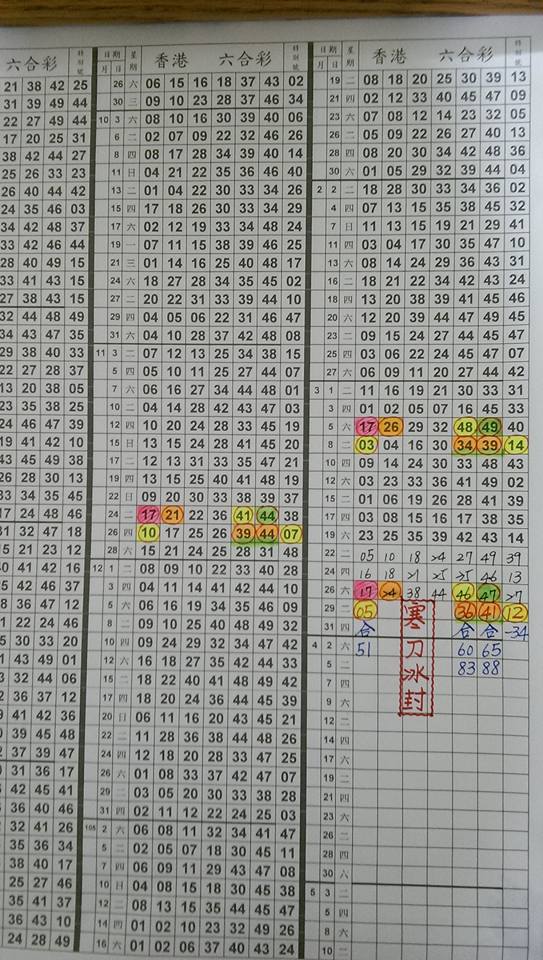 六合彩 特別號
21 38 42 25
31 39 49 44
22 27 49 44
17 20 25 31
38 42 44 27
25 26 33 23
26 40 44 42
24 35 46 03
34 42 48 37
33 42 46 44
28 40 49 15
33 41 43 15
27 38 43 15
32 44 48 49
34 43 47 35
29 38 40 33
22 27 28 37
13 20 38 05
23 35 38 25
24 46 47 39
19 41 42 10
43 45 49 38
26 28 30 13
33 34 35 45
17 24 48 46
31 32 47 18
15 21 23 12
42 16
42 46 37
36 47 12
22 24 46
30 33 20
43 49 01
32 44 06
36 37 12
41 42 36
39 45 48
37 39 47
31 36 17
42 45 41
36 40 46
32 41 26
35 36 34
38 40 17
25 27 46
35 41 37
36 43 10
24 28 49
日期 月 日 星期 香港 六合彩 特別號
26 六 06 15 16 18 37 43 02
30 三 09 10 23 28 37 46 34
10 3 六 08 10 16 30 39 40 06
6 二 02 07 09 22 32 46 26
8 四 08 17 28 34 39 40 14
11 日 04 21 22 35 36 46 40
13 二 01 04 22 30 33 34 26
15 四 17 18 26 30 33 34 29
17 六 02 12 19 33 34 48 24
19 一 07 11 15 38 39 46 25
21 三 01 14 16 25 40 48 17
24 六 18 27 28 34 35 45 02
27 二 20 22 31 33 39 44 10
29 四 04 05 06 22 31 46 47
31 六 04 10 28 37 42 48 08
11 3 二 07 12 13 25 34 38 15
5 四 05 10 11 25 27 44 07
7 六 06 16 27 34 44 48 01
10 二 04 14 28 42 43 47 03
12 四 10 20 24 28 33 45 19
15 日 13 15 24 28 41 45 20
17 二 12 13 31 33 35 47 21
19 四 13 15 25 40 41 48 19
22 日 09 20 30 33 38 39 37
24 二 17 21 22 36 41 44 38
26 四 10 17 25 26 39 44 07
28 六 15 21 24 25 28 31 48
12 1 二 08 09 10 22 33 40 28
3 四 04 11 14 41 42 44 10
5 六 06 16 19 34 35 46 09
8 二 09 10 25 40 48 49 32
10 四 09 24 29 32 34 47 42
12 六 16 18 27 35 42 44 33
15 二 18 22 40 41 48 49 42
17 四 18 20 24 36 44 45 39
20 日 06 11 16 20 43 45 21
22 二 11 28 36 38 44 48 26
24 四 12 18 20 28 33 47 25
26 六 01 08 33 37 42 47 07
29 二 03 05 20 30 33 38 28
31 四 02 11 12 22 24 25 03
105 2 六 06 08 11 32 34 41 47
5 二 02 05 07 18 30 45 11
7 四 06 09 11 29 43 47 08
10 日 04 08 15 18 30 45 38
12 二 08 13 15 35 44 45 47
14 四 01 02 10 23 32 49 26
16 六 01 02 06 37 40 43 24
日期 月 日 星期 香港 六合彩 特別號
19 二 08 18 20 25 30 39 13
21 四 02 12 33 40 45 47 09
23 六 07 08 12 14 23 32 05
26 二 05 09 22 26 27 40 13
28 四 08 20 30 34 42 48 36
30 六 01 05 29 32 39 44 04
2 2 二 18 28 30 33 34 36 02
4 四 07 13 15 35 38 45 32
7 日 11 13 15 19 21 29 41
11 四 03 04 17 30 35 47 10
13 六 08 14 24 29 36 43 31
16 二 18 21 22 34 42 43 24
18 四 13 20 38 39 41 45 46
20 六 12 20 39 44 47 49 45
23 二 09 15 24 27 44 45 47
25 四 03 06 22 24 45 47 07
27 六 06 09 11 20 27 44 42
3 1 二 11 16 19 21 30 33 31
3 四 01 02 05 07 16 45 33
5 六 17 26 29 32 48 49 40
8 二 03 04 16 30 34 39 14
10 四 09 14 24 30 33 48 43
12 六 03 23 33 36 41 49 02
15 二 01 06 19 26 28 41 39
17 四 03 08 15 16 17 38 35
19 六 23 25 35 39 42 43 14
22 二 05 10 18 24 27 49 39
24 四 16 18 21 25 25 46 13
26 六 17 24 38 44 46 47 27
29 二 05 36 41 12
31 四 合 合 合 -34
4 2 六 51 60 65
5 二 83 88
7 四
9 六
12 二
14 四
17 六
19 二
21 四
23 六
26 二
28 四
30 六
5 3 二
5 四
8 六
10 二
寒刀冰封